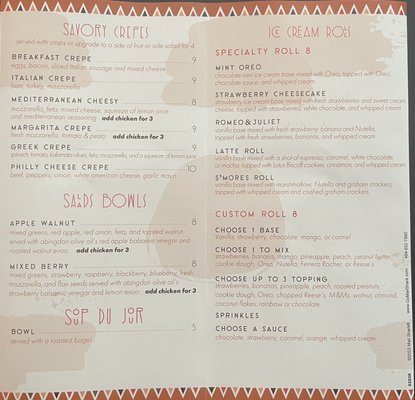 SAVORY CREPES
served with crisps or upgrade to a side of fruit or side salad for 4
BREAKFAST CREPE 9
eggs, bacon, sliced Italian sausage and mixed cheese
ITALIAN CREPE 9
ham, turkey, mozzarella
MEDITERRANEAN CHEESY 8
mozzarella, feta, mixed cheese, squeeze of lemon juice
and mediterranean seasoning add chicken for 3
MARGARITA CREPE 9
fresh mozzarella, tomato & pesto. add chicken for 3
GREEK CREPE 9
spinach, tomato, kalamata olives, feta, mozzarella, and a squeeze of lemon juice
PHILLY CHEESE CREPE 10
beef, peppers, onion, white american cheese, garlic mayo
SALADS BOWLS
APPLE WALNUT 8
mixed greens, red apple, red onion, feta, and toasted walnut
served with abingdon olive oil's red apple balsamic vinegar and
toasted walnut evoo add chicken for 3
MIXED BERRY 8
mixed greens, strawberry, raspberry, blackberry, blueberry, fresh
mozzarella, and flax seeds served with abingdon olive oil's
strawberry balsamic vinegar and lemon evoo add chicken for 3
SOUP DU JOUR
BOWL 5
served with a toasted bagel
ICE CREAM ROLLS
SPECIALTY ROLL 8
MINT OREO
chocolate mint ice cream base mixed with Oreo, topped with Oreo,
chocolate sauce, and whipped cream
STRAWBERRY CHEESECAKE
strawberry ice cream base mixed with fresh strawberries and sweet cream
cheese, topped with strawberries, white chocolate, and whipped cream
ROMEO & JULIET
vanilla base mixed with fresh strawberry, banana and Nutella,
topped with fresh strawberries, bananas, and whipped cream
LATTE ROLL
vanilla base mixed with a shot of espresso, caramel, white chocolate,
or mocha, topped with Lotus Biscoff cookies, cinnamon, and whipped cream
S'MORES ROLL
vanilla base mixed with marshmallow, Nutella and graham crackers,
topped with whipped cream and crushed graham crackers
CUSTOM ROLL 8
CHOOSE 1 BASE
Vanilla, strawberry, chocolate, mango, or carmel
CHOOSE 1 TO MIX
strawberries, banana, mango, pineapple, peach, peanut butter,
cookie dough, Oreo, Nutella, Ferrero Rocher, or Reese's
CHOOSE UP TO 3 TOPPING
strawberries, bananas, pineapple, peach, roasted peanuts,
cookie dough, Oreo, chopped Reese's, M&Ms, walnut, almond,
coconut flakes, rainbow or chocolate
SPRINKLES
CHOOSE A SAUCE
chocolate, strawberry, caramel, orange, whipped cream